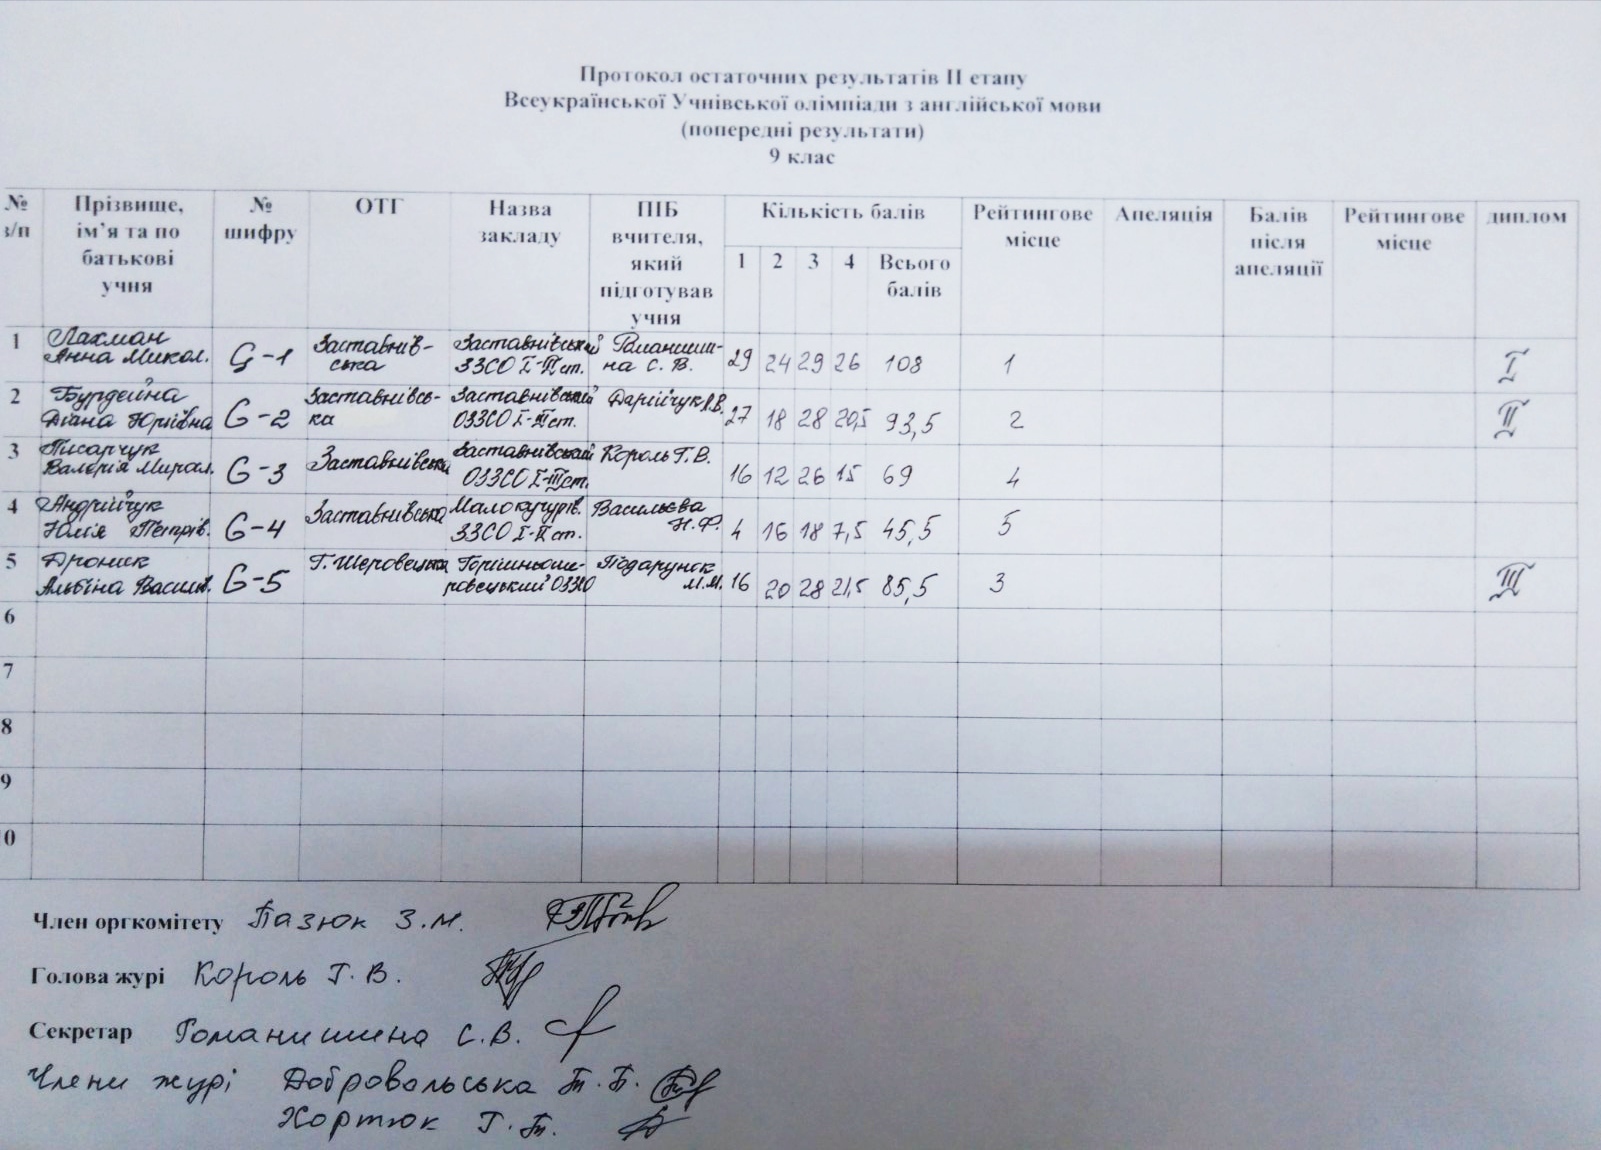 Протокол остаточних результатів II етапу
Всеукраїнської Учнівської олімпіади з англійської мови
(попередні результати)
9 клас
№ з/п Прізвище, ім’я та по батькові учня № шифру ОТГ Назва закладу ПІБ вчителя, який підготував учня Кількість балів 1 2 3 4 Всього балів Рейтингове місце Апеляція Балів після апеляції Рейтингове місце диплом
1 Лахман Анна Микол. G-1 Заставнівська Заставнівський ЗЗСО I-II ст. Романишина С. В. 29 24 29 26 108 1 I
2 Бурдейна Діана Юріївна G-2 Заставнівська Заставнівський ОЗЗСО I-III ст. Дарійчук 27 18 28 20,5 93,5 2 II
3 Писарчук Валерія G-3 Заставнівська Заставнівський ОЗЗСО I-III ст. Король Г. В. 16 12 26 15 69 4
4 Андрійчук Юлія Петрів. G-4 Заставнівська Малокучурів. ЗЗСО I-II ст. Васильєва Н. Ф. 4 16 18 7,5 45,5 5
5 Дроник Альбіна Васил. G-5 Г. Шеровецька Горішньошеровецький ОЗЗСО Подарунок М.М. 16 20 28 21,5 85,5 3 III
6
7
8
9
0
Член оргкомітету Пазюк З.М.
Голова журі Король Г. В.
Секретар Романишина С.В.
Члени журі Добровольська Т. В.
Хортюк Г. П.